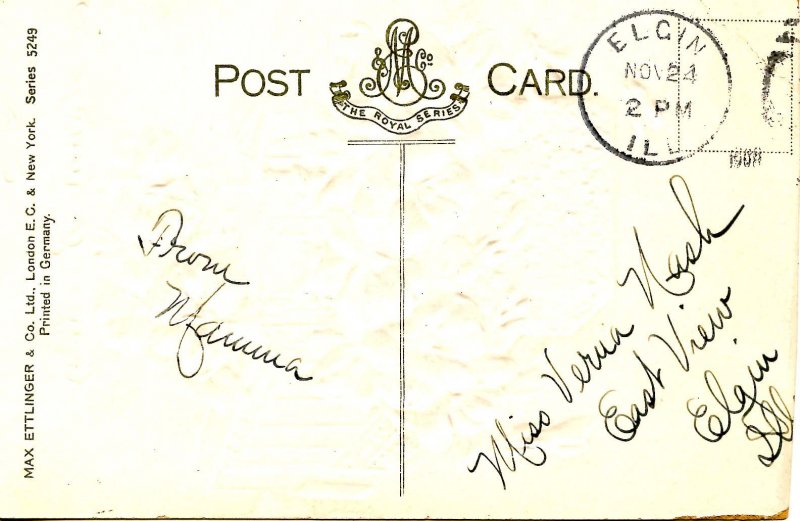 MAX ETTLINGER & Co. Ltd., London E.C. & New York. Series 5249
Printed in Germany.
POST CARD.
Co
THE ROYAL SERIES
ELGIN
NOV 24
2 PM
ILL
1908
From
Mamma
Miss Verna Nash
East View
Elgin
Ill